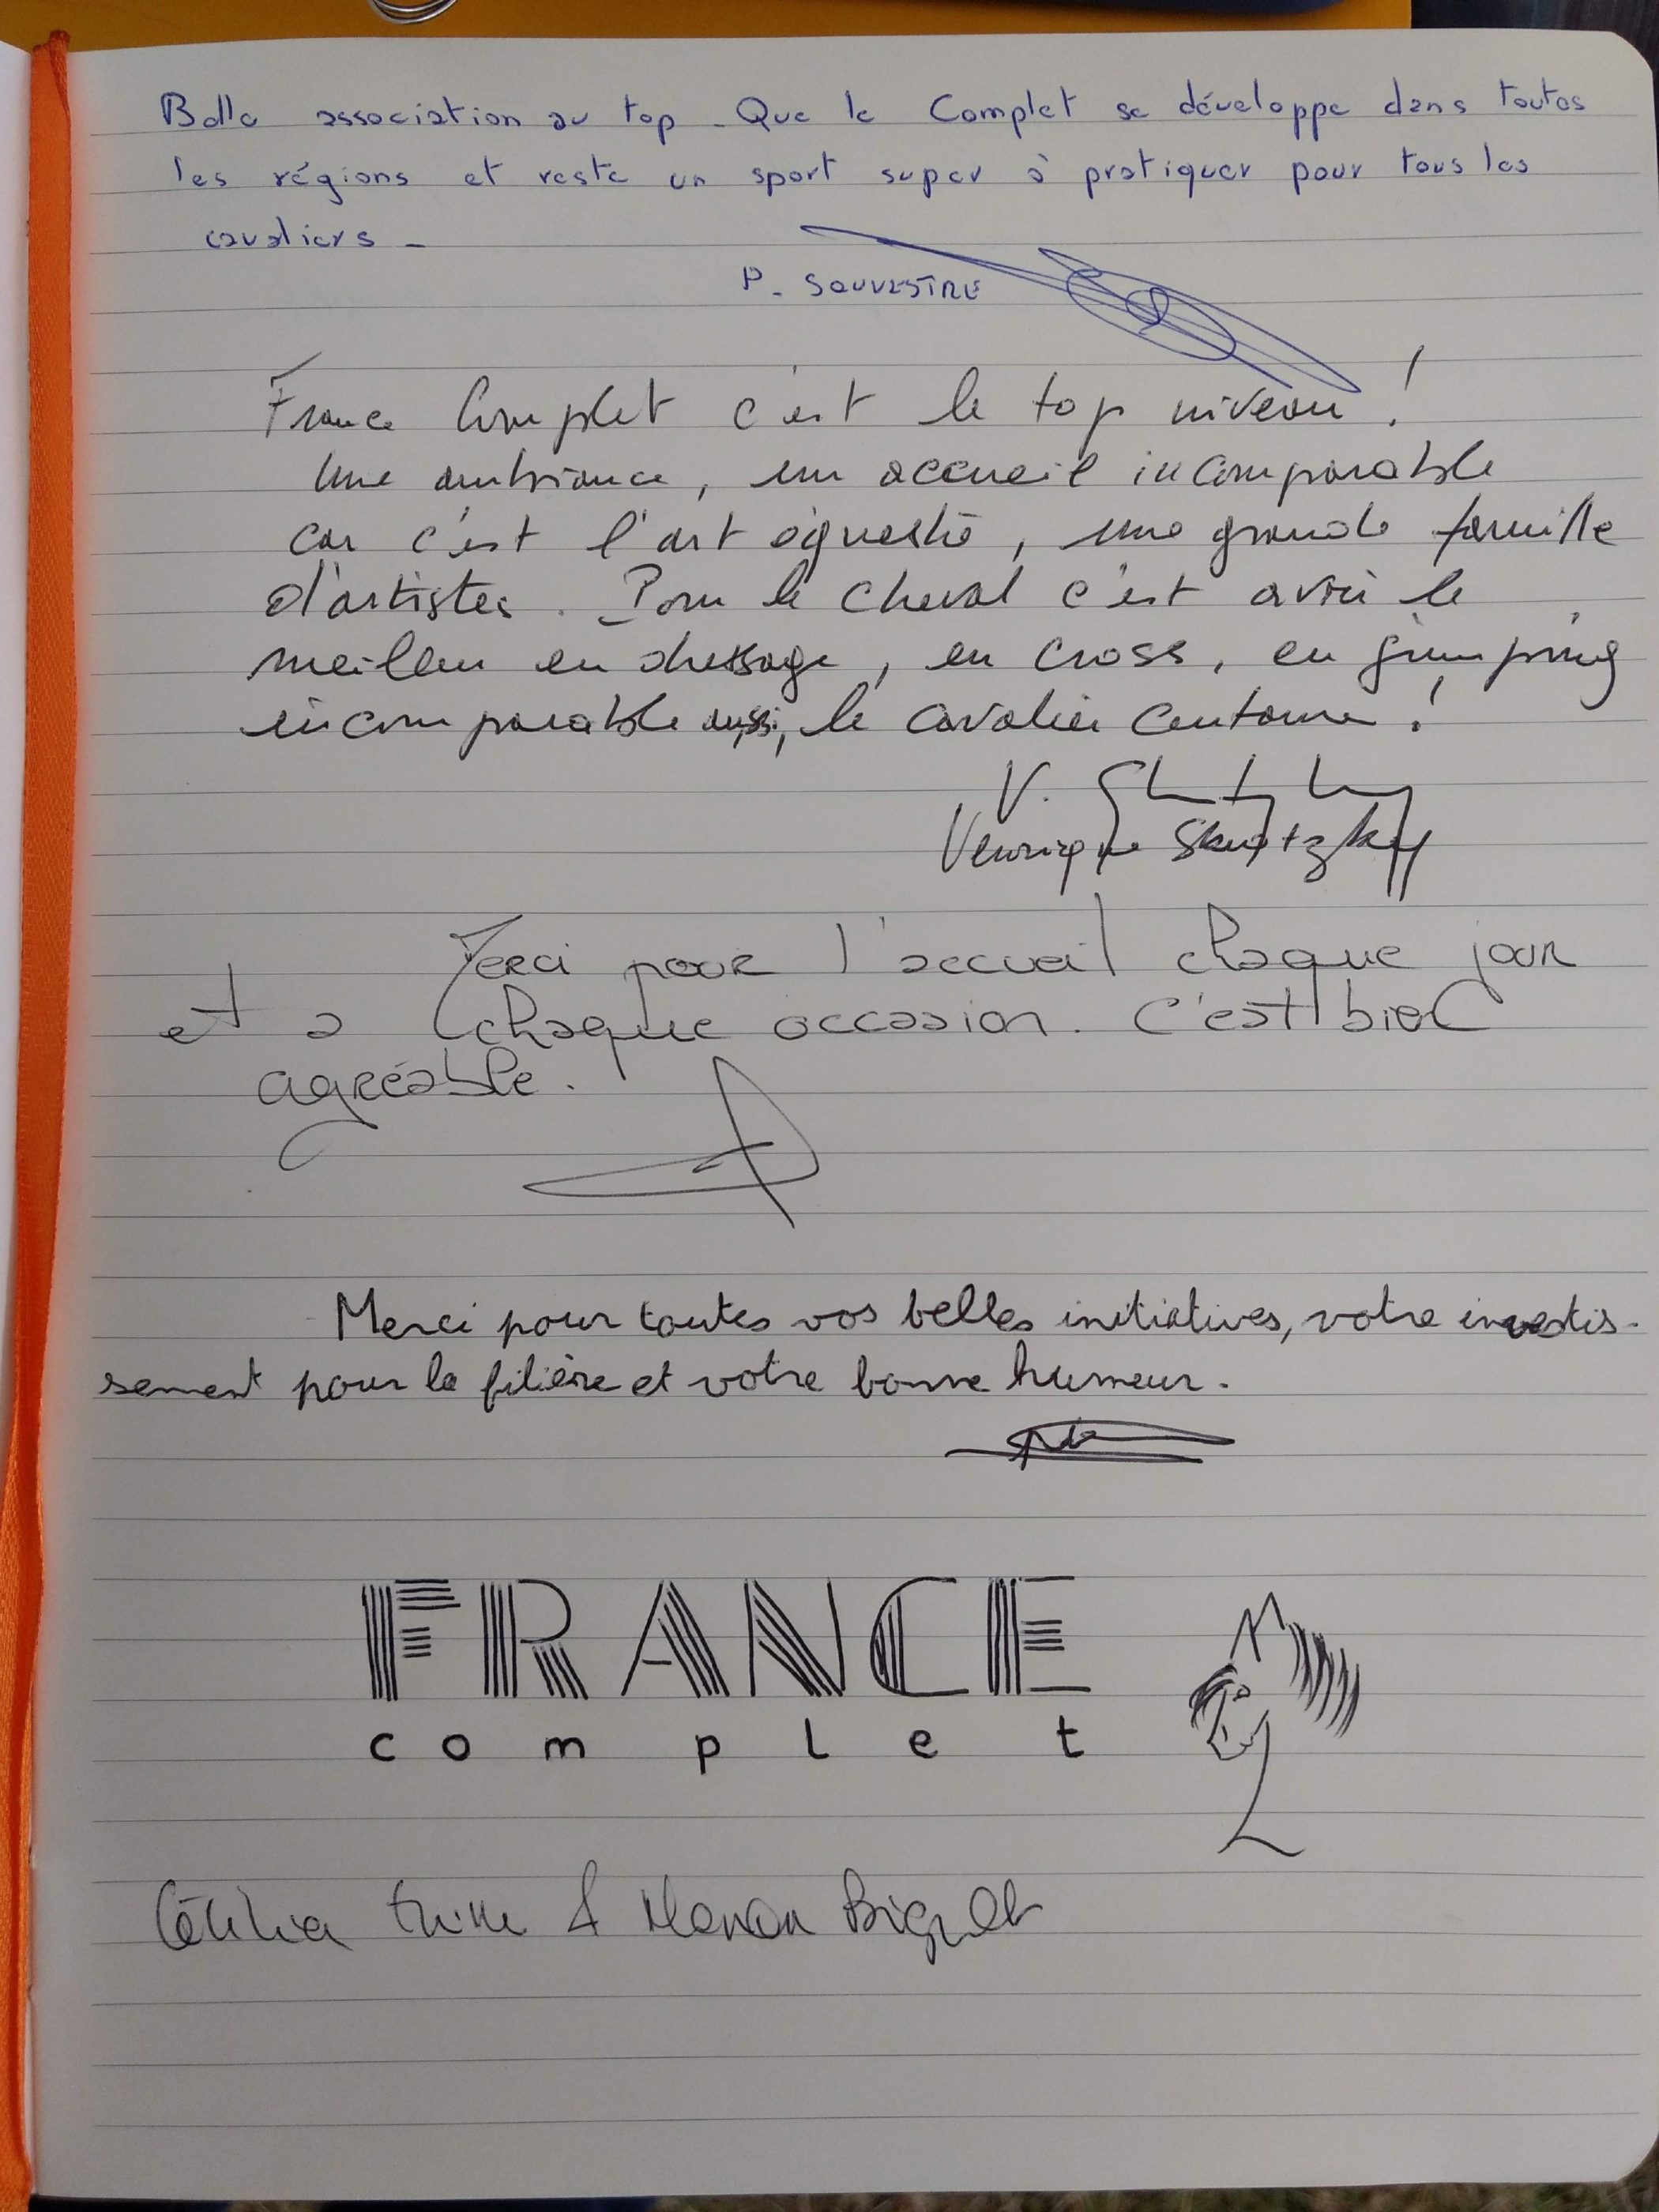 Belle association au top - Que le Complet se développe dans toutes
les régions et reste un sport super à pratiquer pour tous les
cavaliers -
P. SOUVESTRE
France Complet c'est le top niveau !
Une ambiance, un accueil incomparable
car c'est l'art équestre, une grande famille
d'artistes. Pour le cheval c'est avoir le
meilleur en dressage, en cross, en jumping
incomparable aussi, le cavalier centaure !
V.
Véronique Skwotzky
Merci pour l'accueil chaque jour
et a chaque occasion. C'est bien
agréable.
Merci pour toutes vos belles initiatives, votre investis-
sement pour la filière et votre bonne humeur.
FRANCE
complet
& Manon Bignet